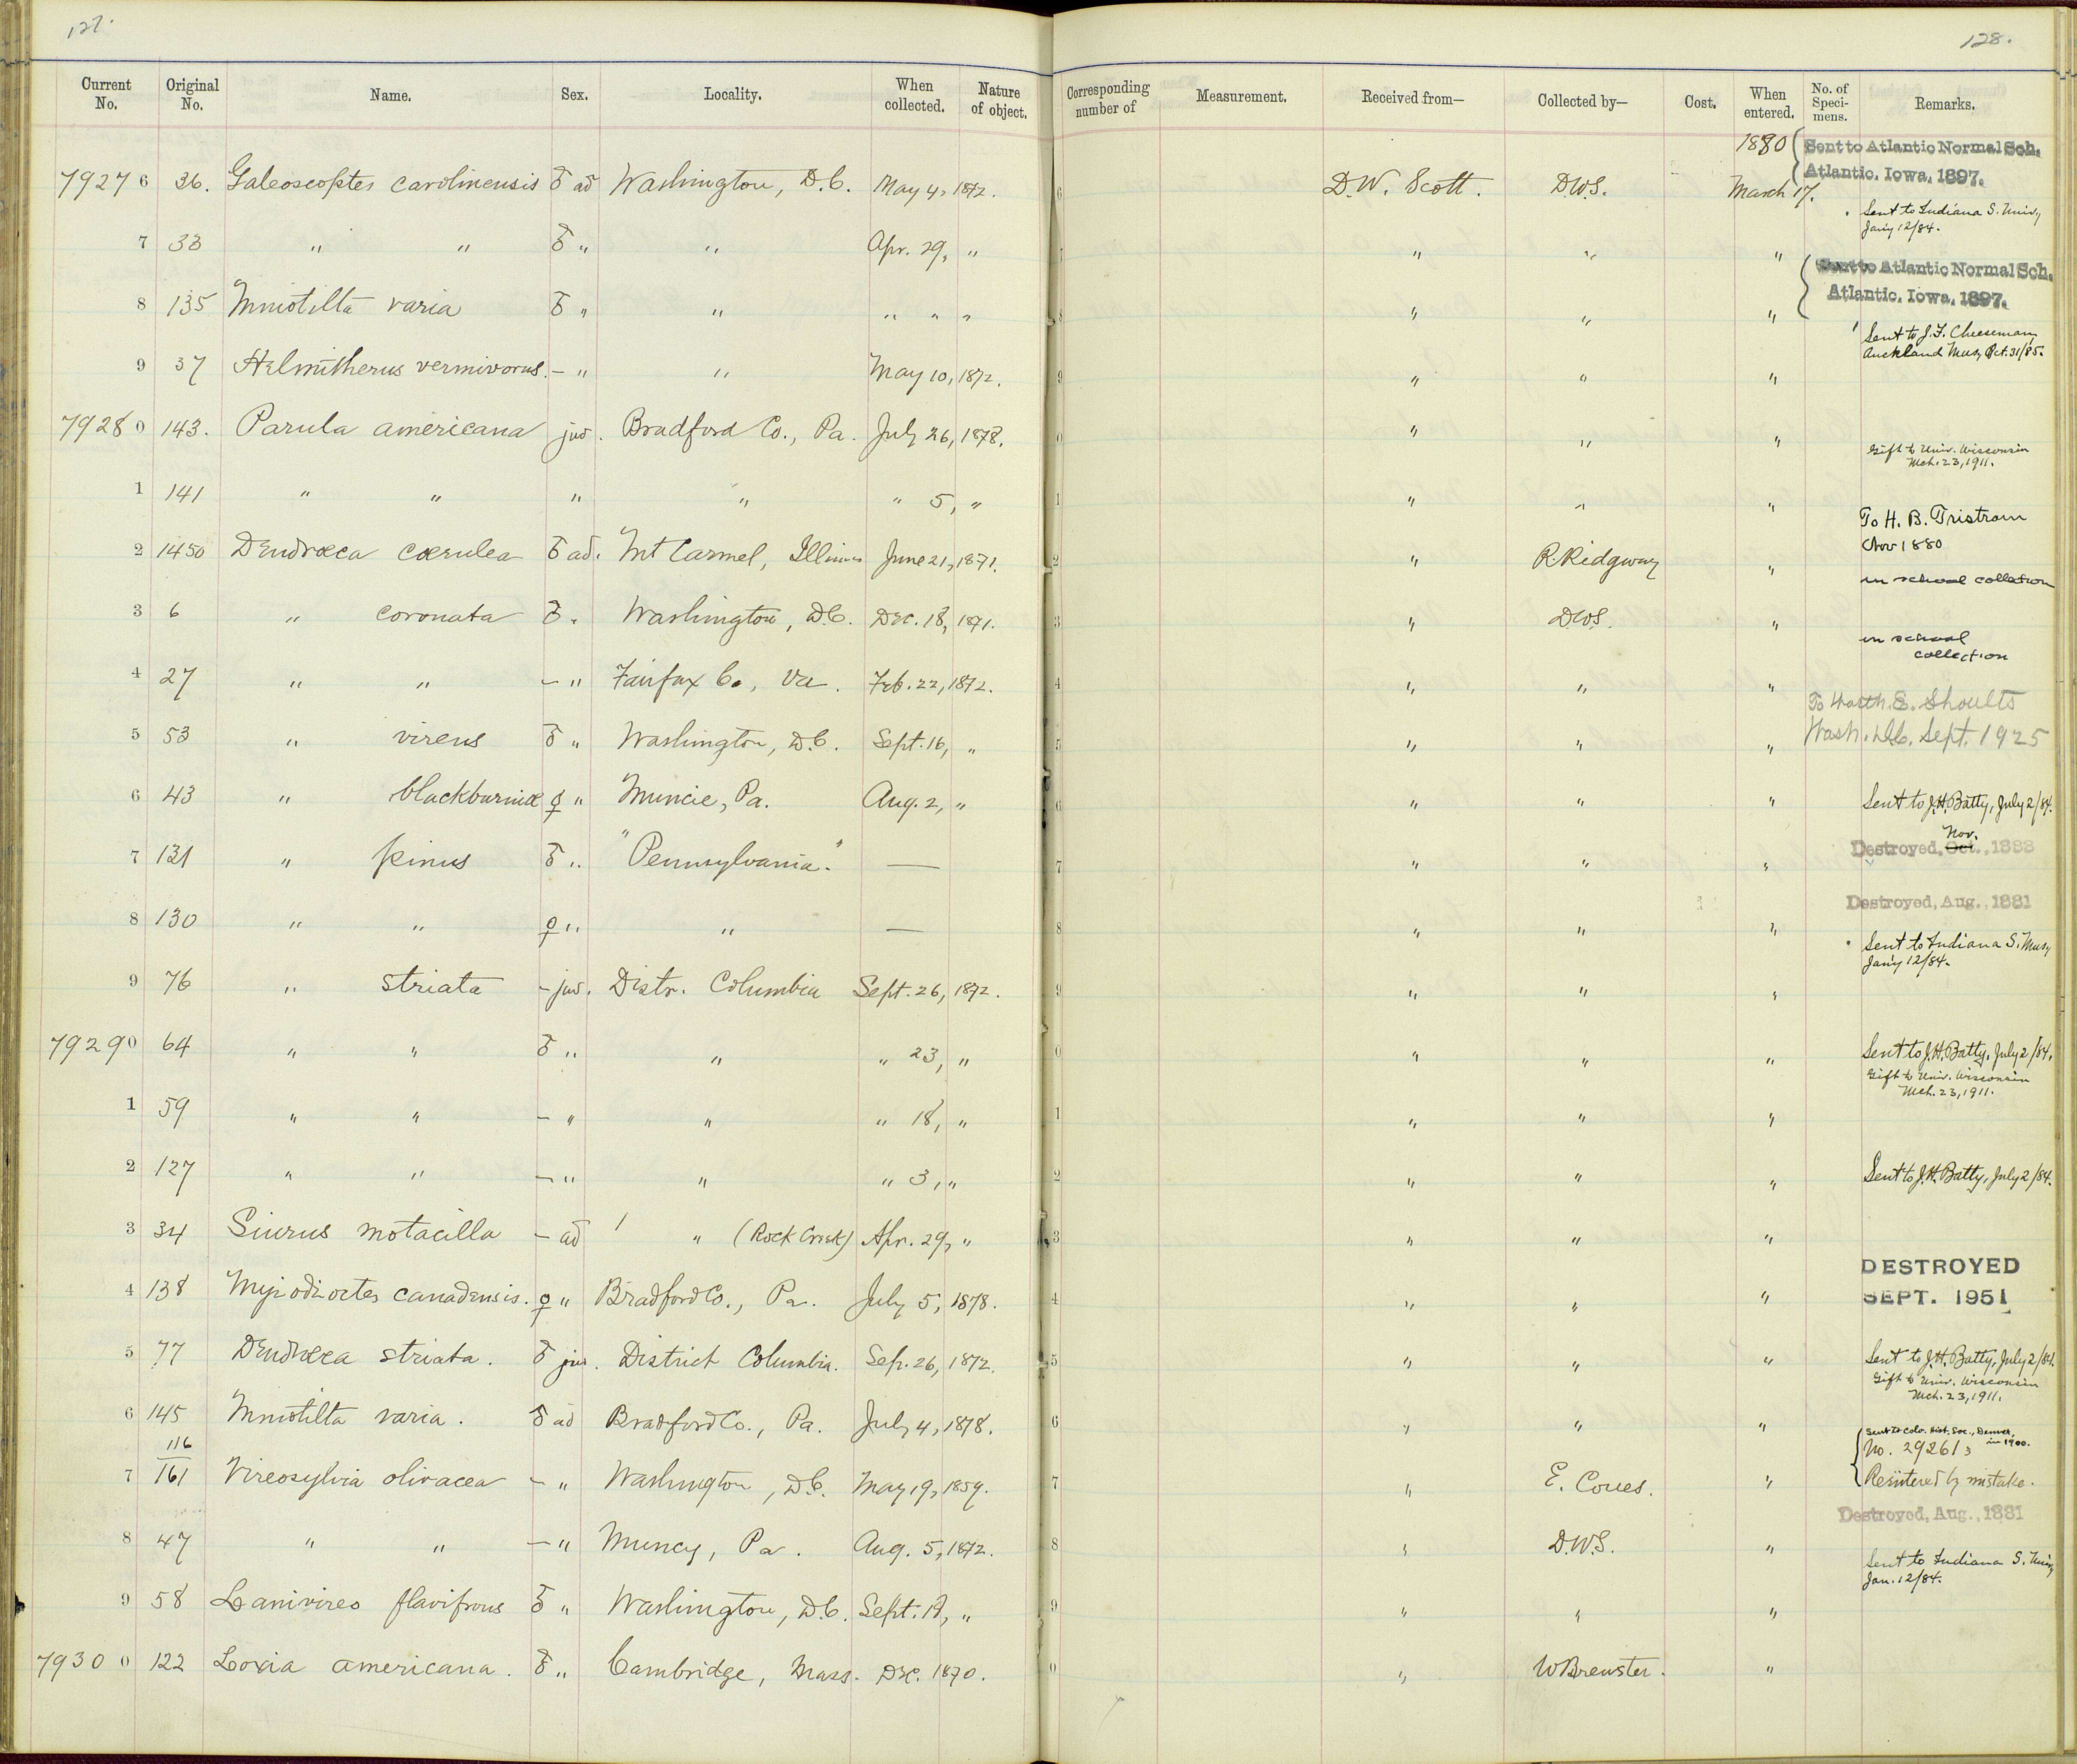 127.
Current No. Original No. Name. Sex. Locality. When collected. Nature of object.
79276 36. Galeoscoptes carolinensis ♂ ad Washington, D.C. May 4, 1872.
7 33 " " ♂ " " Apr. 29, "
8 135 Mniotilta varia ♂ " " " " "
9 37 Helmitherus vermivorus. – " " May 10, 1872.
79280 143. Parula americana juv. Bradford Co., Pa. July 26, 1878.
1 141 " " " " " 5, "
2 1450 Dendrœca cœrulea ♂ ad. Mt Carmel, Illinois June 21, 1871.
3 6 " coronata ♂ " Washington, D.C. Dec. 18, 1871.
4 27 " " – " Fairfax Co, Va. Feb. 22, 1872.
5 53 " virens ♂ " Washington, D.C. Sept. 16, "
6 43 " blackburniæ ♀ " Muncie, Pa. Aug. 2, "
7 131 " pinus ♂ " "Pennsylvania." —
8 130 " " ♀ " " —
9 76 " striata – juv. Distr. Columbia Sept. 26, 1872.
79290 64 " " ♂ " " " 23, "
1 59 " " – " " " 18, "
2 127 " " – " " " 3, "
3 34 Siurus motacilla – ad " (Rock Creek) Apr. 29, "
4 138 Myiodioctes canadensis. ♀ " Bradford Co., Pa. July 5, 1878.
5 77 Dendrœca striata. ♂ juv. District Columbia. Sep. 26, 1872.
6 145 Mniotilta varia. ♂ ad Bradford Co., Pa. July 4, 1878.
116
7 161 Vireosylvia olivacea – " Washington, D.C. May 19, 1859.
8 47 " " – " Muncy, Pa. Aug. 5, 1872.
9 58 Lanivireo flavifrons ♂ " Washington, D.C. Sept. 18, "
79300 122 Loxia americana. ♂ " Cambridge, Mass. Dec. 1870.
128.
Corresponding number of Measurement. Received from— Collected by— Cost. When entered. No. of Specimens. Remarks.
1880 Sent to Atlantic Normal Sch.
Atlantic, Iowa, 1897.
6 D.W. Scott. D.W.S. March 17.
Sent to Indiana S. Univ,
Jan'y 12/84.
7 " " "
Sent to Atlantic Normal Sch.
Atlantic, Iowa, 1897.
8 " " "
Sent to J.F. Cheeseman,
Auckland Mus, Oct. 31/85.
9 " " "
0 " " "
Gift to Univ. Wisconsin
Mch. 23, 1911.
1 " " "
To H. B. Tristram
Nov 1880
2 " R. Ridgway "
in school collection
3 " D.W.S. "
in school
collection
4 " " "
To Worth. E. Shoults
Wash. D.C. Sept. 1925
5 " " "
6 " " " Sent to J.H. Batty, July 2/84.
Nov.
7 " " " Destroyed, Oct., 1883
Destroyed, Aug., 1881
8 " " "
Sent to Indiana S. Mus,
Jan'y 12/84.
9 " " "
0 " " " Sent to J.H. Batty, July 2/84.
Gift to Univ. Wisconsin
Mch. 23, 1911.
1 " " "
2 " " " Sent to J.H. Batty, July 2/84.
3 " " "
DESTROYED
4 " " " SEPT. 1951
5 " " " Sent to J.H. Batty, July 2/84.
Gift to Univ. Wisconsin
Mch. 23, 1911.
6 " " "
Sent to Colo. Hist. Soc., Denver,
in 1900.
No. 29261,
7 " E. Coues. " Reëntered by mistake.
Destroyed, Aug., 1881
8 " D.W.S. "
Sent to Indiana S. Univ,
Jan. 12/84.
9 " " "
0 " W Brewster. "